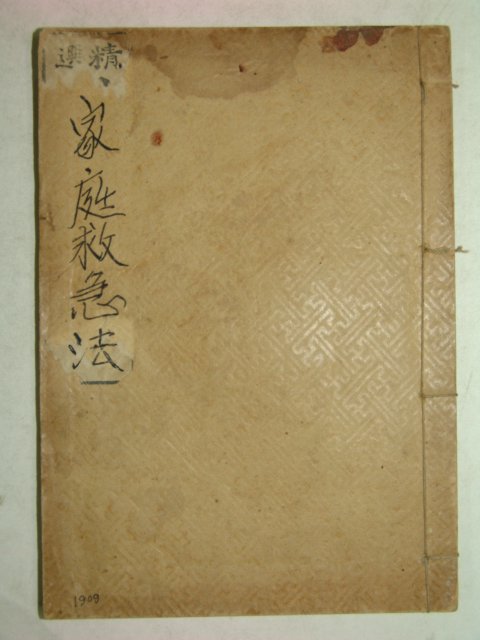 精選
家庭救急法
1909